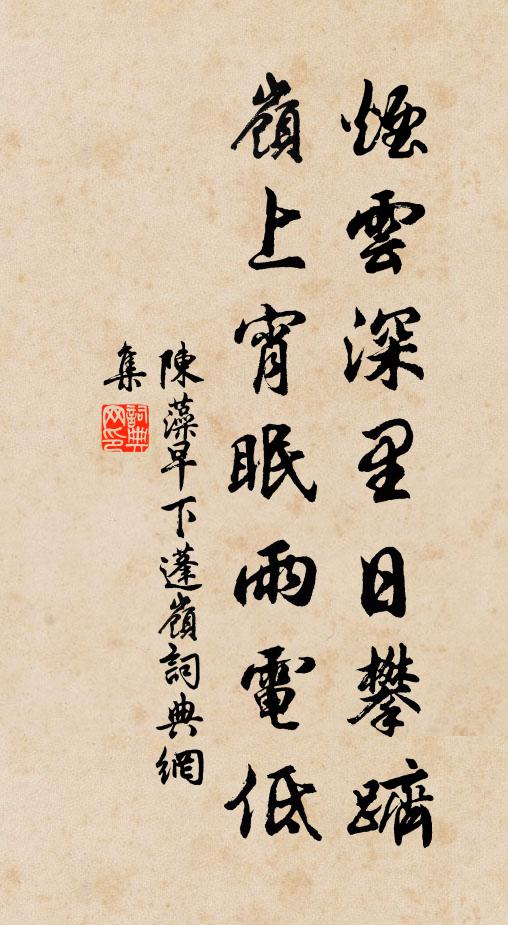 煙雲深里日攀躋
嶺上宵眠雨電低
陳藻早下蓬嶺詞典網
集
詞典
网印